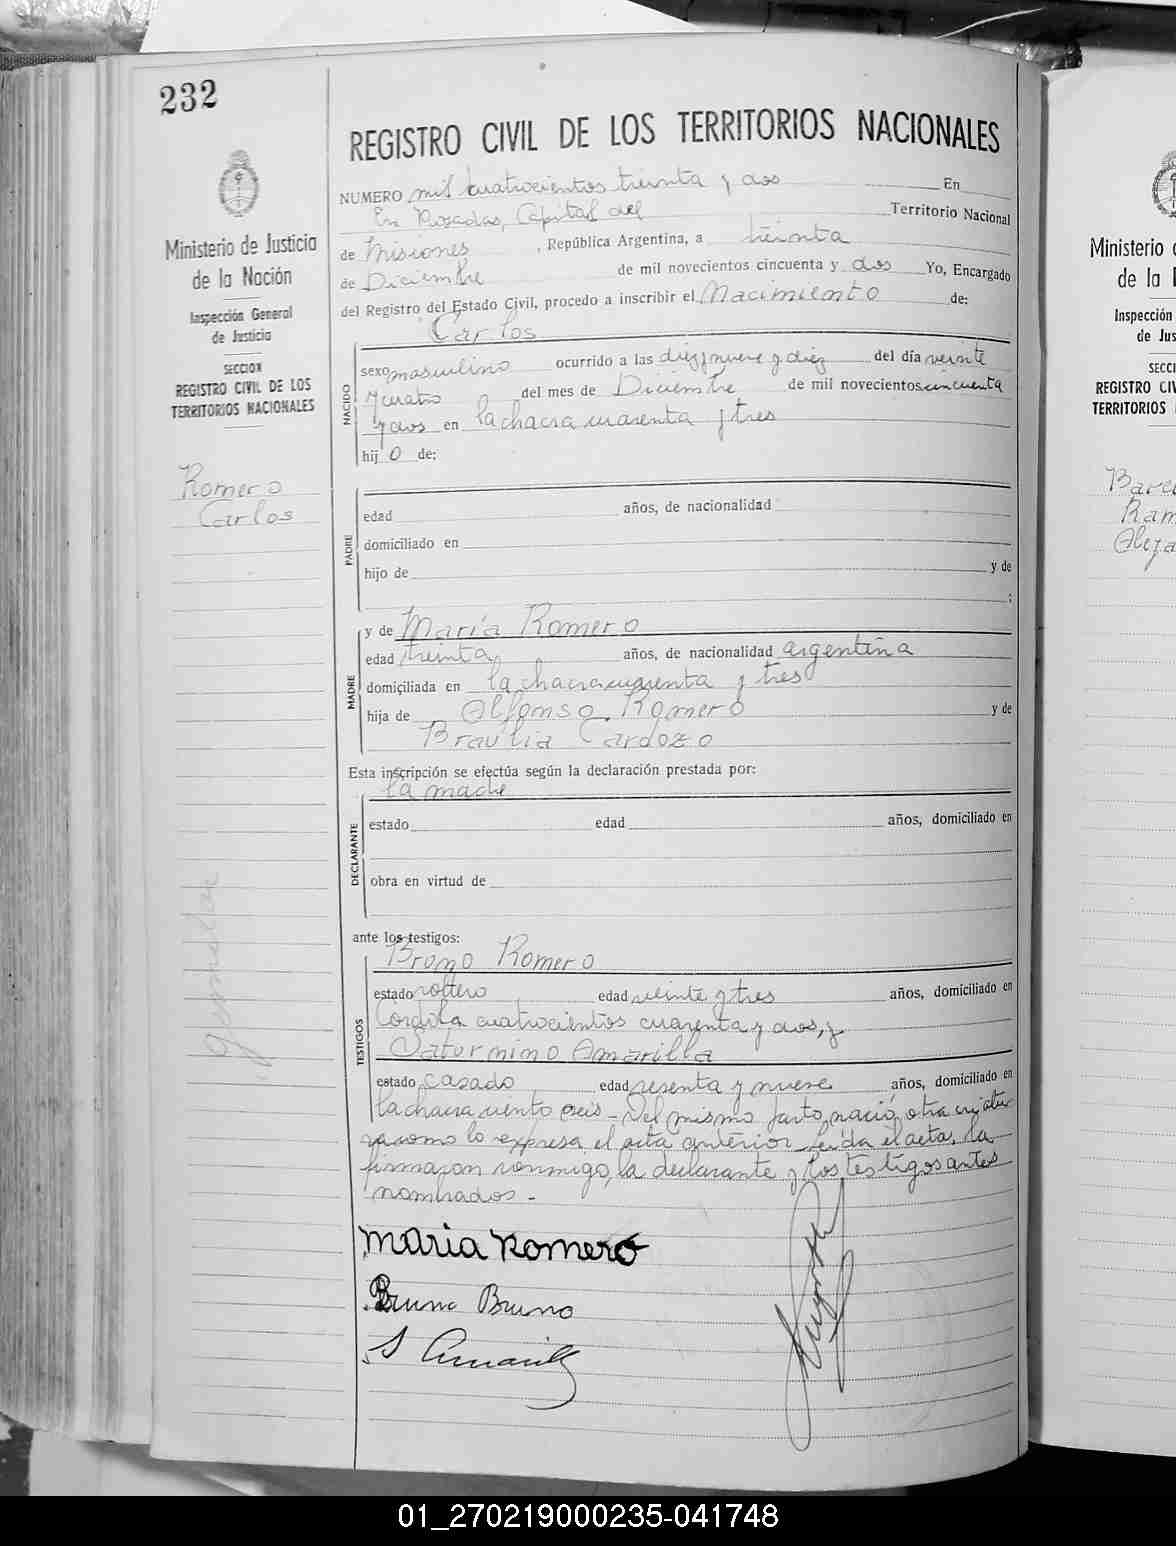 232
REGISTRO CIVIL DE LOS TERRITORIOS NACIONALES
Ministerio de Justicia
de la Nación
Inspección General
de Justicia
SECCION
REGISTRO CIVIL DE LOS
TERRITORIOS NACIONALES
Romero
Carlos
NUMERO mil cuatrocientos treinta y dos En
En Posadas, Capital del Territorio Nacional
de Misiones, República Argentina, a treinta
de Diciembre de mil novecientos cincuenta y dos Yo, Encargado
del Registro del Estado Civil, procedo a inscribir el Nacimiento de:
Carlos
NACIDO
sexo masculino ocurrido a las diez y nueve y diez del día veinte
y cuatro del mes de Diciembre de mil novecientos cincuenta
y dos en la chacra cuarenta y tres
hij o de:
PADRE
edad años, de nacionalidad
domiciliado en
hijo de y de
;
MADRE
y de María Romero
edad treinta años, de nacionalidad argentina
domiciliada en la chacra cuarenta y tres
hija de Alfonso Romero y de
Braulia Cardozo
Esta inscripción se efectúa según la declaración prestada por:
la madre
DECLARANTE
estado edad años, domiciliado en
obra en virtud de
ante los testigos:
TESTIGOS
Bruno Romero
estado soltero edad veinte y tres años, domiciliado en
Córdoba cuatrocientos cuarenta y dos, y
Saturnino Amarilla
estado casado edad sesenta y nueve años, domiciliado en
la chacra ciento seis - Del mismo parto nació otra criatu
ra como lo expresa el acta anterior Leída el acta, la
firmaron conmigo, la declarante y los testigos antes
nombrados -
maria Romero
Bruno Bruno
S Amarilla
Ministerio d
de la
Inspección
de Jus
SECCI
REGISTRO CIV
TERRITORIOS
01_270219000235-041748